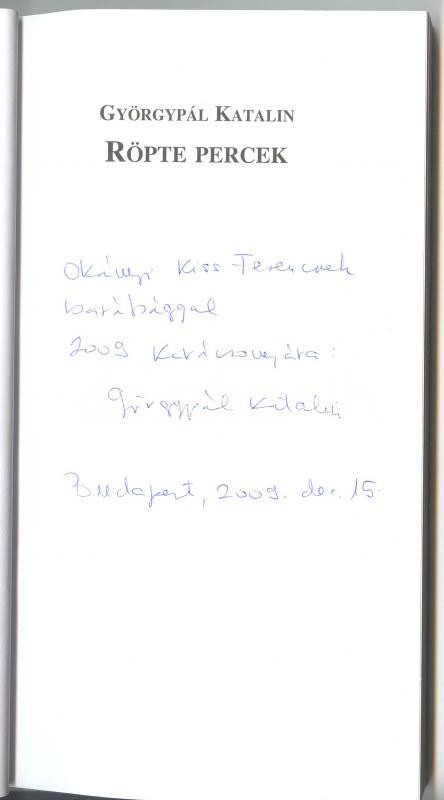 GYÖRGYPÁL KATALIN
RÖPTE PERCEK
Okányi Kiss Ferencnek
barátsággal
2009 Karácsonyára:
Györgypál Katalin
Budapest, 2009. dec. 15.